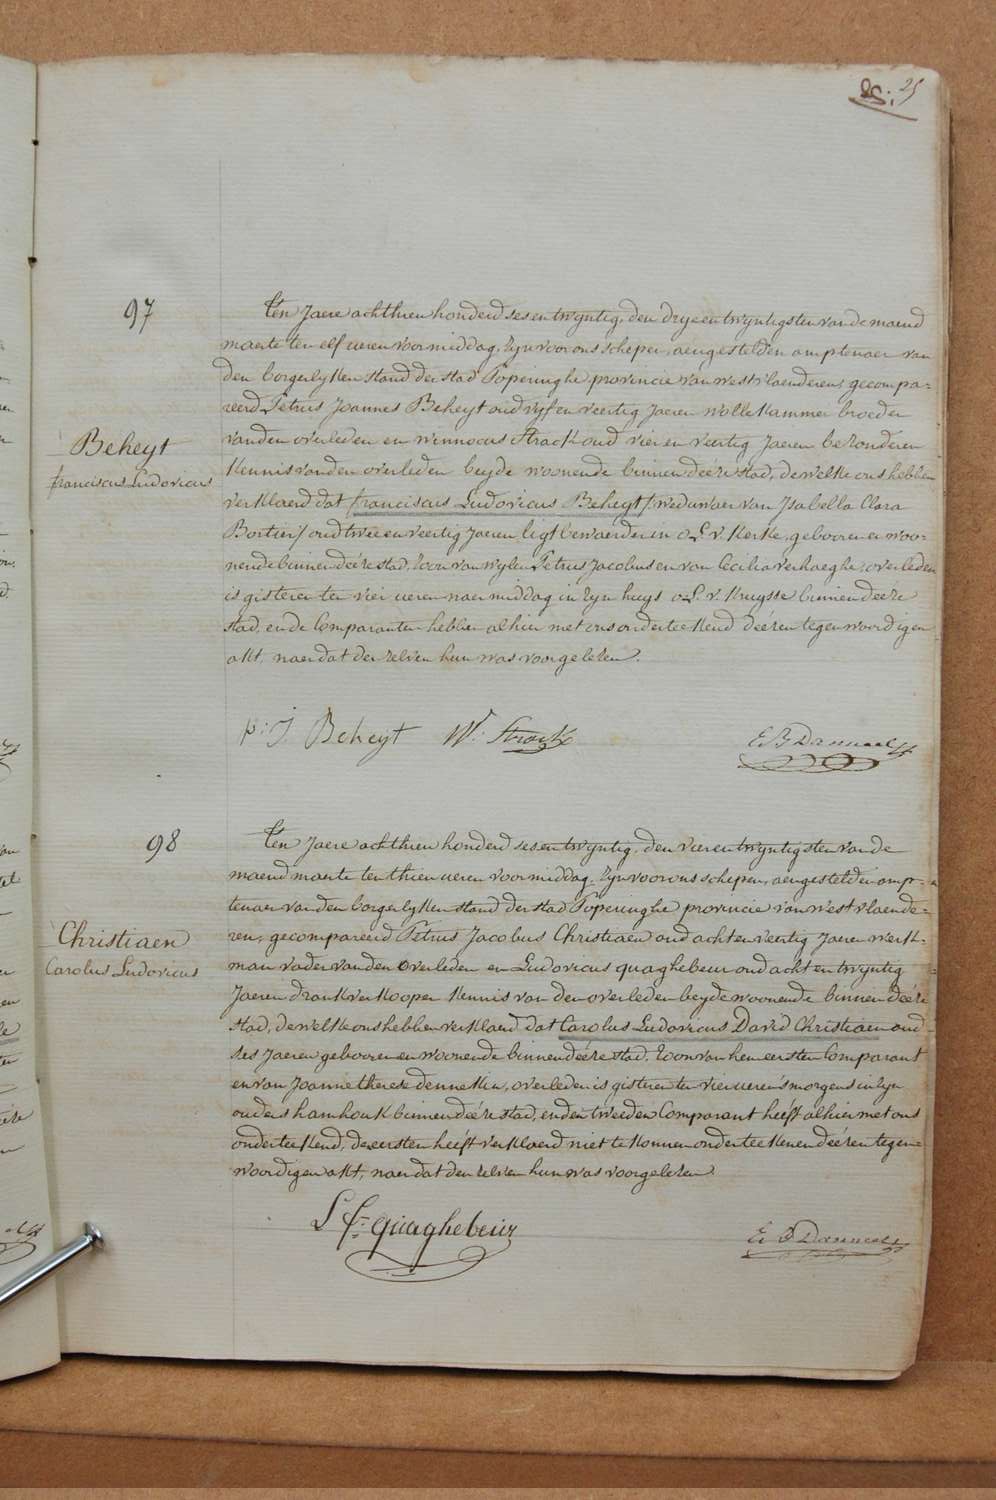 25
97
Beheyt
franciscus Ludovicus
Ten Jaere achthien honderd sesentwyntig, den dryeentwyntigsten van de maend
maerte ten elf ueren voormiddag, zyn voor ons schepen, aengestelden amptenaer van
den borgerlyken stand der stad Poperinghe provincie van westvlaenderen, gecompa-
reerd Petrus Joannes Beheyt oud vyf en veertig Jaeren wollekammer broeder
van den overleden en winnocus Strack oud vier en veertig Jaeren bezonderen
kennis van den overleden beyde woonende binnen deéze stad, dewelke ons hebben
verklaerd dat franciscus Ludovicus Beheyt / weduwaer van Isabella Clara
Bortier / oud twee en veertig Jaeren ligtbewaerder in O. L. v. kerke, gebooren en woo-
nende binnen deéze stad, zoon van wylen Petrus Jacobus en van Cecilia verhaeghe, overleden
is gisteren ten vier ueren naermiddag in zyn huys O. L. v. kruysse binnen deéze
stad, en de Comparanten hebben alhier met ons onderteekend deézen tegenwoordigen
akt, naer dat den zelven hun was voorgelezen.
p: J. Beheyt W: Strack E B Danneel
98
Christiaen
Carolus Ludovicus
Ten Jaere achthien honderd sesentwyntig, den vierentwyntigsten van de
maend maerte ten thien ueren voormiddag, zyn voor ons schepen, aengestelden amp-
tenaer van den borgerlyken stand der stad Poperinghe provincie van westvlaende-
ren, gecompareerd Petrus Jacobus Christiaen oud acht en veertig Jaeren werk-
man vader van den overleden en Ludovicus quaghebeur oud acht en twyntig
Jaeren drankverkooper kennis van den overleden beyde woonende binnen deéze
stad, dewelke ons hebben verklaerd dat Carolus Ludovicus David Christiaen oud
ses Jaeren gebooren en woonende binnen deéze stad, zoon van hem eersten Comparant
en van Joanne therese denneKin, overleden is gisteren ten vier ueren smorgens in zyn
ouders hamhouk binnen deéze stad, en den tweeden Comparant heéft alhier met ons
onderteekend, de eersten heéft verklaerd niet te konnen onderteekenen deézen tegen-
woordigen akt, naer dat den zelven hun was voorgelezen
L f: quaghebeur E B Danneel